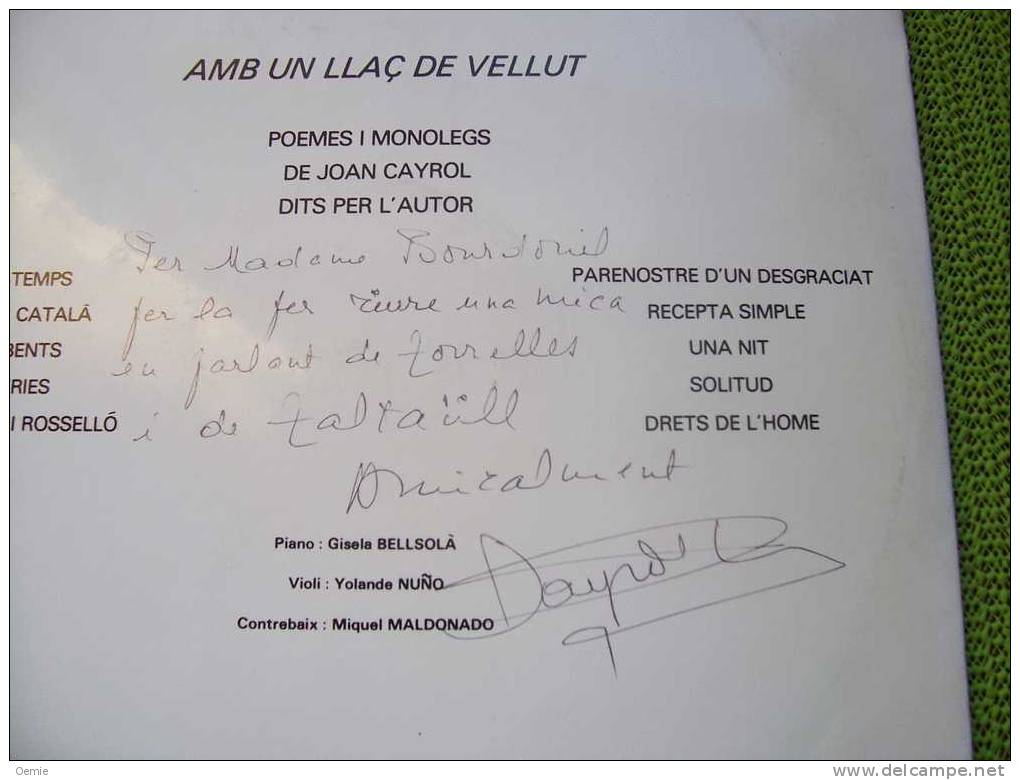 AMB UN LLAÇ DE VELLUT
POEMES I MONOLEGS
DE JOAN CAYROL
DITS PER L'AUTOR
TEMPS
CATALÁ
BENTS
RIES
I ROSSELLÓ
Per Madame
per la fer riure una mica
en parlant de Torrelles
i de Taltaüll
Amicalment
Cayrol
PARENOSTRE D'UN DESGRACIAT
RECEPTA SIMPLE
UNA NIT
SOLITUD
DRETS DE L'HOME
Piano : Gisela BELLSOLÀ
Violi : Yolande NUÑO
Contrebaix : Miquel MALDONADO
Oemie
www.delcampe.net